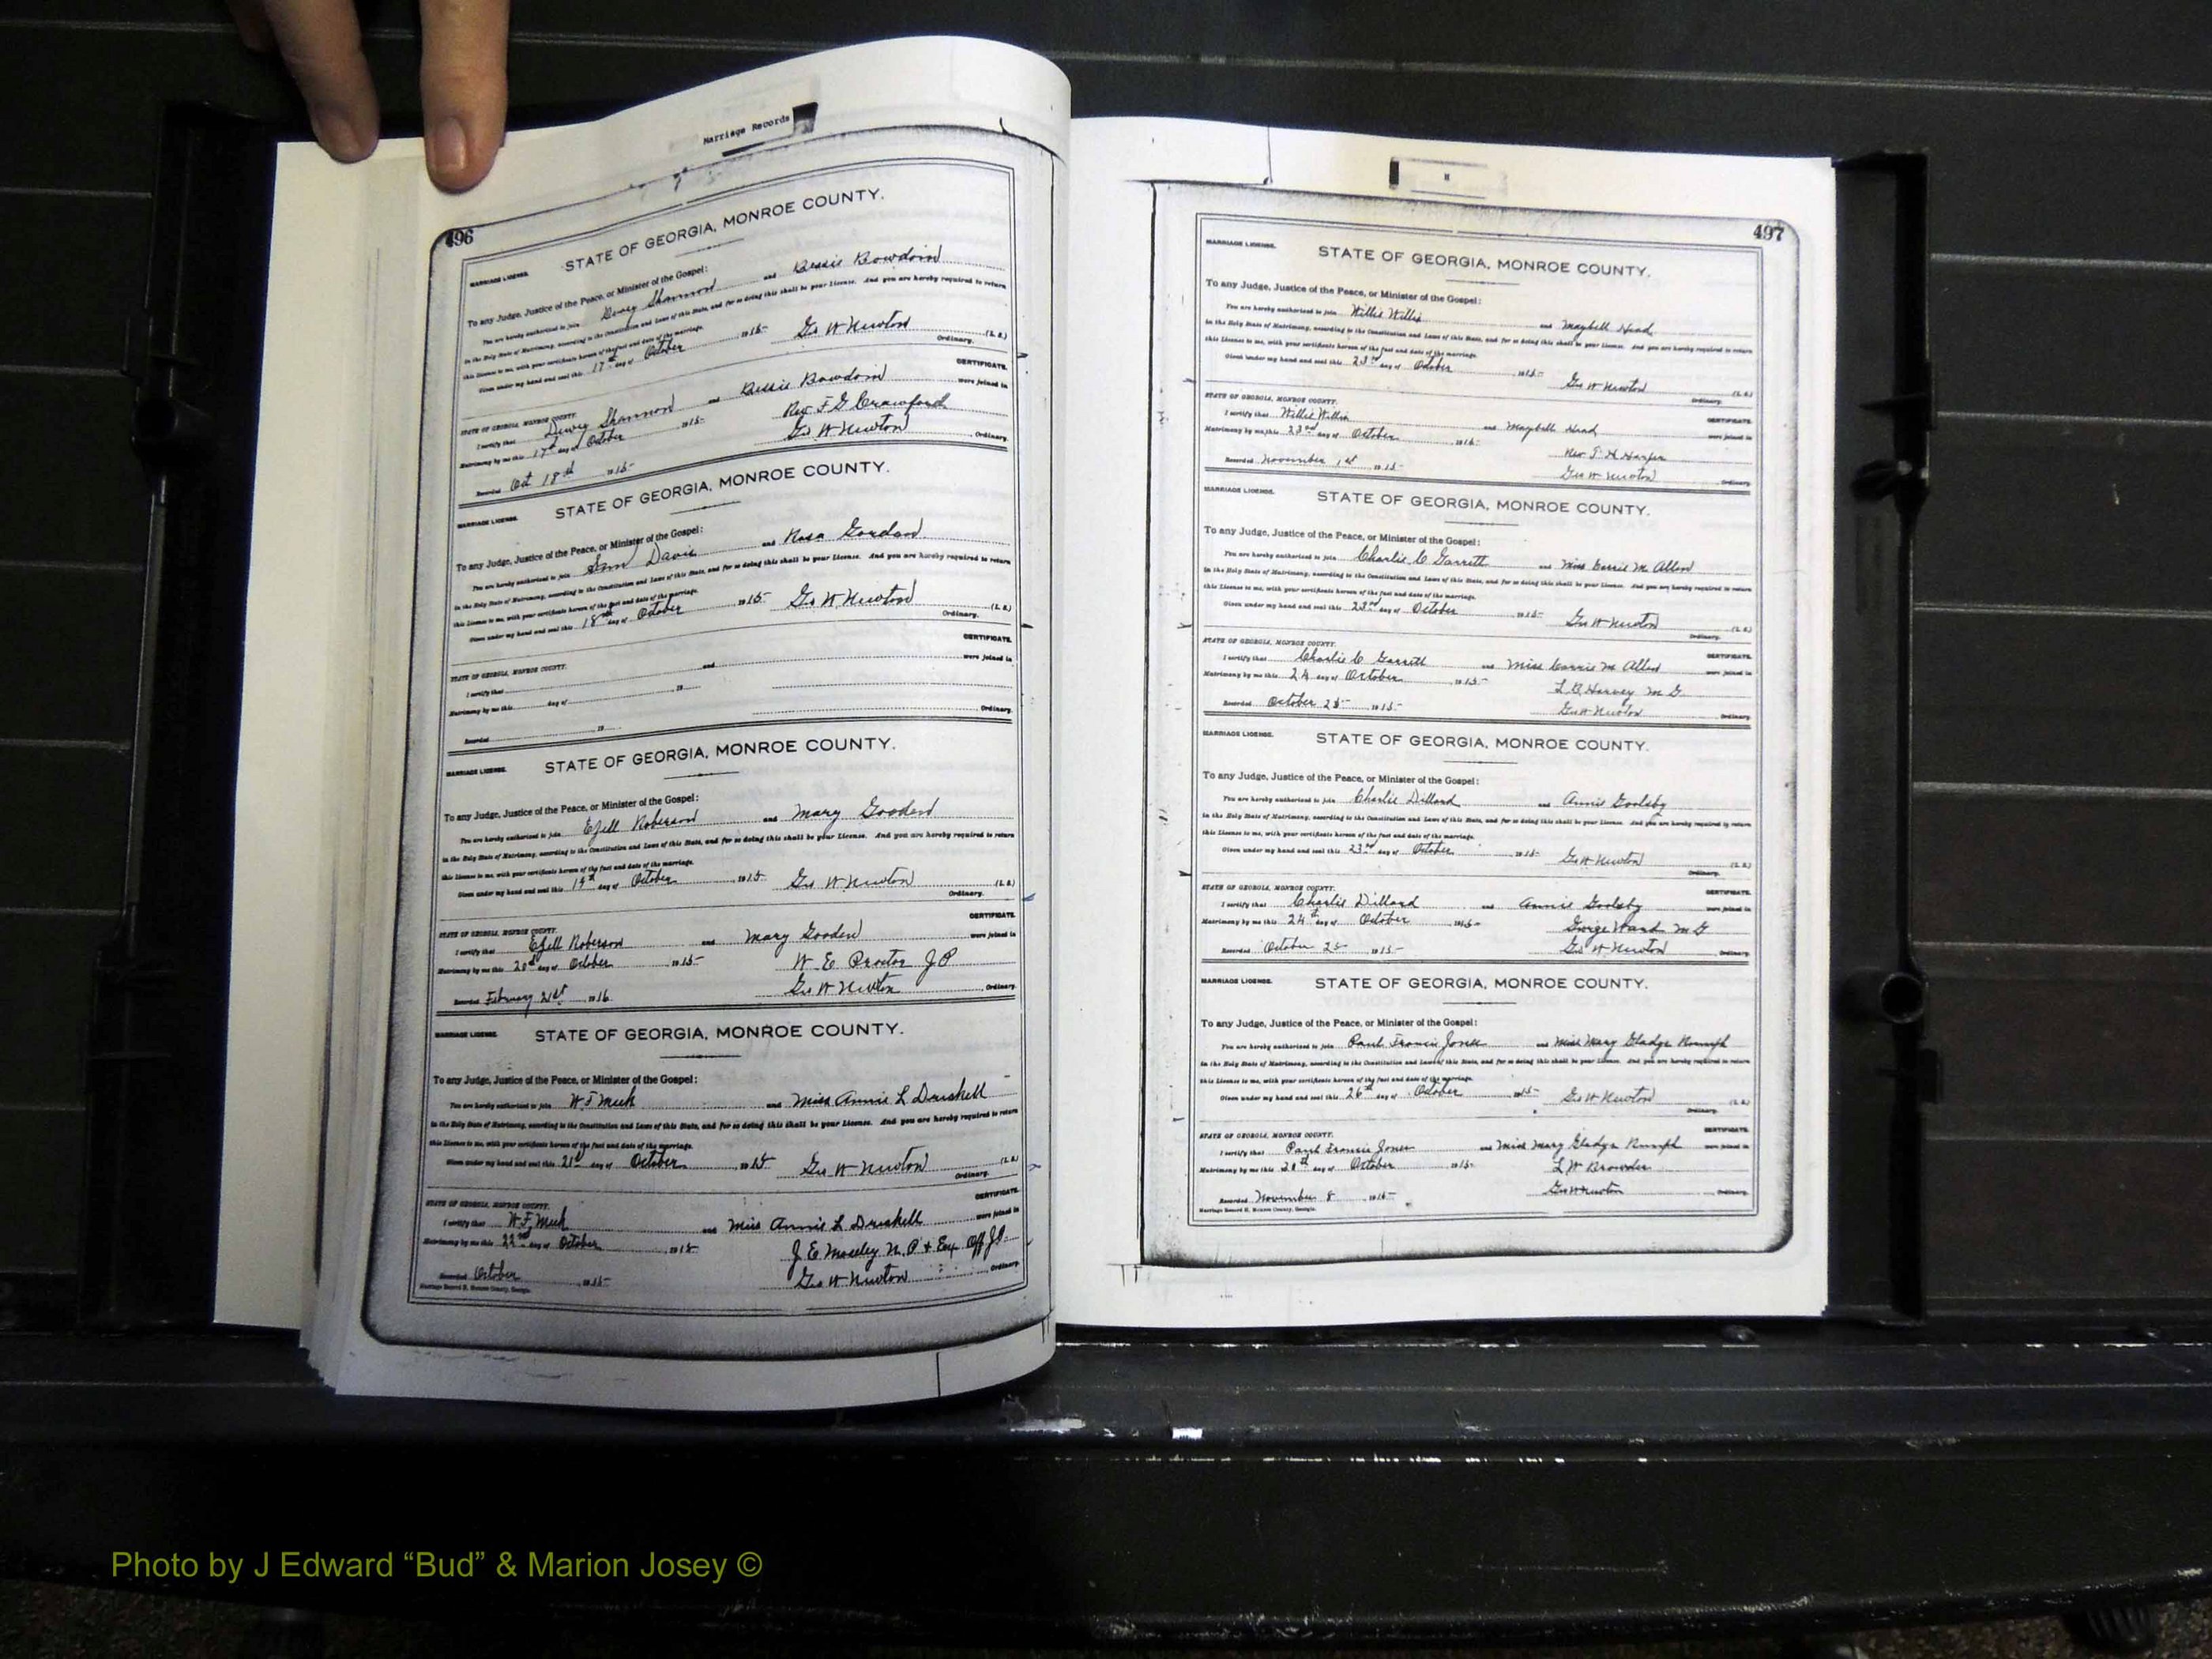 Marriage Records
496
STATE OF GEORGIA, MONROE COUNTY.
MARRIAGE LICENSE.
To any Judge, Justice of the Peace, or Minister of the Gospel:
You are hereby authorized to join Dewey Shannon and Bessie Bowdoin
in the Holy State of Matrimony, according to the Constitution and Laws of this State, and for so doing this shall be your License. And you are hereby required to return
this License to me, with your certificate hereon of the fact and date of the marriage.
Given under my hand and seal this 17th day of October 1915 Geo W Newton (L. S.)
Ordinary.
CERTIFICATE.
STATE OF GEORGIA, MONROE COUNTY.
I certify that Dewey Shannon and Bessie Bowdoin were joined in
Matrimony by me this 17th day of October 1915 Rev F G Crawford
Recorded Oct 18th 1915 Geo W Newton Ordinary.
MARRIAGE LICENSE.
STATE OF GEORGIA, MONROE COUNTY.
To any Judge, Justice of the Peace, or Minister of the Gospel:
You are hereby authorized to join Davis and Rosa Gordon
in the Holy State of Matrimony, according to the Constitution and Laws of this State, and for so doing this shall be your License. And you are hereby required to return
this License to me, with your certificate hereon of the fact and date of the marriage.
Given under my hand and seal this 18th day of October 1915 Geo W Newton (L. S.)
Ordinary.
CERTIFICATE.
STATE OF GEORGIA, MONROE COUNTY.
I certify that and were joined in
Matrimony by me this day of , 19
Recorded , 19 Ordinary.
MARRIAGE LICENSE.
STATE OF GEORGIA, MONROE COUNTY.
To any Judge, Justice of the Peace, or Minister of the Gospel:
You are hereby authorized to join Ezell Roberson and Mary Gooden
in the Holy State of Matrimony, according to the Constitution and Laws of this State, and for so doing this shall be your License. And you are hereby required to return
this License to me, with your certificate hereon of the fact and date of the marriage.
Given under my hand and seal this 19th day of October 1915 Geo W Newton (L. S.)
Ordinary.
CERTIFICATE.
STATE OF GEORGIA, MONROE COUNTY.
I certify that Ezell Roberson and Mary Gooden were joined in
Matrimony by me this 20th day of October 1915 W E Proctor J P
Recorded February 21st 1916 Geo W Newton Ordinary.
MARRIAGE LICENSE.
STATE OF GEORGIA, MONROE COUNTY.
To any Judge, Justice of the Peace, or Minister of the Gospel:
You are hereby authorized to join W F Meek and Miss Annie L Driskell
in the Holy State of Matrimony, according to the Constitution and Laws of this State, and for so doing this shall be your License. And you are hereby required to return
this License to me, with your certificate hereon of the fact and date of the marriage.
Given under my hand and seal this 21st day of October 1915 Geo W Newton (L. S.)
Ordinary.
CERTIFICATE.
STATE OF GEORGIA, MONROE COUNTY.
I certify that W F Meek and Miss Annie L Driskell were joined in
Matrimony by me this 22nd day of October 1915 J E Moseley N. P & Ex Off J P
Recorded October 1915 Geo W Newton Ordinary.
Marriage Record H, Monroe County, Georgia.
H
497
MARRIAGE LICENSE.
STATE OF GEORGIA, MONROE COUNTY.
To any Judge, Justice of the Peace, or Minister of the Gospel:
You are hereby authorized to join Willie Willis and Maybell Head
in the Holy State of Matrimony, according to the Constitution and Laws of this State, and for so doing this shall be your License. And you are hereby required to return
this License to me, with your certificate hereon of the fact and date of the marriage.
Given under my hand and seal this 23rd day of October 1915 Geo W Newton (L. S.)
Ordinary.
CERTIFICATE.
STATE OF GEORGIA, MONROE COUNTY.
I certify that Willie Willis and Maybell Head were joined in
Matrimony by me this 23rd day of October 1915 Rev T H Harper
Recorded November 1st 1915 Geo W Newton Ordinary.
MARRIAGE LICENSE.
STATE OF GEORGIA, MONROE COUNTY.
To any Judge, Justice of the Peace, or Minister of the Gospel:
You are hereby authorized to join Charlie C Garrett and Miss Carrie M Allen
in the Holy State of Matrimony, according to the Constitution and Laws of this State, and for so doing this shall be your License. And you are hereby required to return
this License to me, with your certificate hereon of the fact and date of the marriage.
Given under my hand and seal this 23rd day of October 1915 Geo W Newton (L. S.)
Ordinary.
CERTIFICATE.
STATE OF GEORGIA, MONROE COUNTY.
I certify that Charlie C Garrett and Miss Carrie M Allen were joined in
Matrimony by me this 24 day of October 1915 L B Harvey M G
Recorded October 25 1915 Geo W Newton Ordinary.
MARRIAGE LICENSE.
STATE OF GEORGIA, MONROE COUNTY.
To any Judge, Justice of the Peace, or Minister of the Gospel:
You are hereby authorized to join Charlie Dillard and Annie Goolsby
in the Holy State of Matrimony, according to the Constitution and Laws of this State, and for so doing this shall be your License. And you are hereby required to return
this License to me, with your certificate hereon of the fact and date of the marriage.
Given under my hand and seal this 23rd day of October 1915 Geo W Newton (L. S.)
Ordinary.
CERTIFICATE.
STATE OF GEORGIA, MONROE COUNTY.
I certify that Charlie Dillard and Annie Goolsby were joined in
Matrimony by me this 24th day of October 1915 George Ward M G
Recorded October 25 1915 Geo W Newton Ordinary.
MARRIAGE LICENSE.
STATE OF GEORGIA, MONROE COUNTY.
To any Judge, Justice of the Peace, or Minister of the Gospel:
You are hereby authorized to join Paul Francis Jones and Miss Mary Gladys Rumph
in the Holy State of Matrimony, according to the Constitution and Laws of this State, and for so doing this shall be your License. And you are hereby required to return
this License to me, with your certificate hereon of the fact and date of the marriage.
Given under my hand and seal this 26th day of October 1915 Geo W Newton (L. S.)
Ordinary.
CERTIFICATE.
STATE OF GEORGIA, MONROE COUNTY.
I certify that Paul Francis Jones and Miss Mary Gladys Rumph were joined in
Matrimony by me this 28th day of October 1915 L W Browder
Recorded November 8 1915 Geo W Newton Ordinary.
Marriage Record H, Monroe County, Georgia.
Photo by J Edward “Bud” & Marion Josey ©